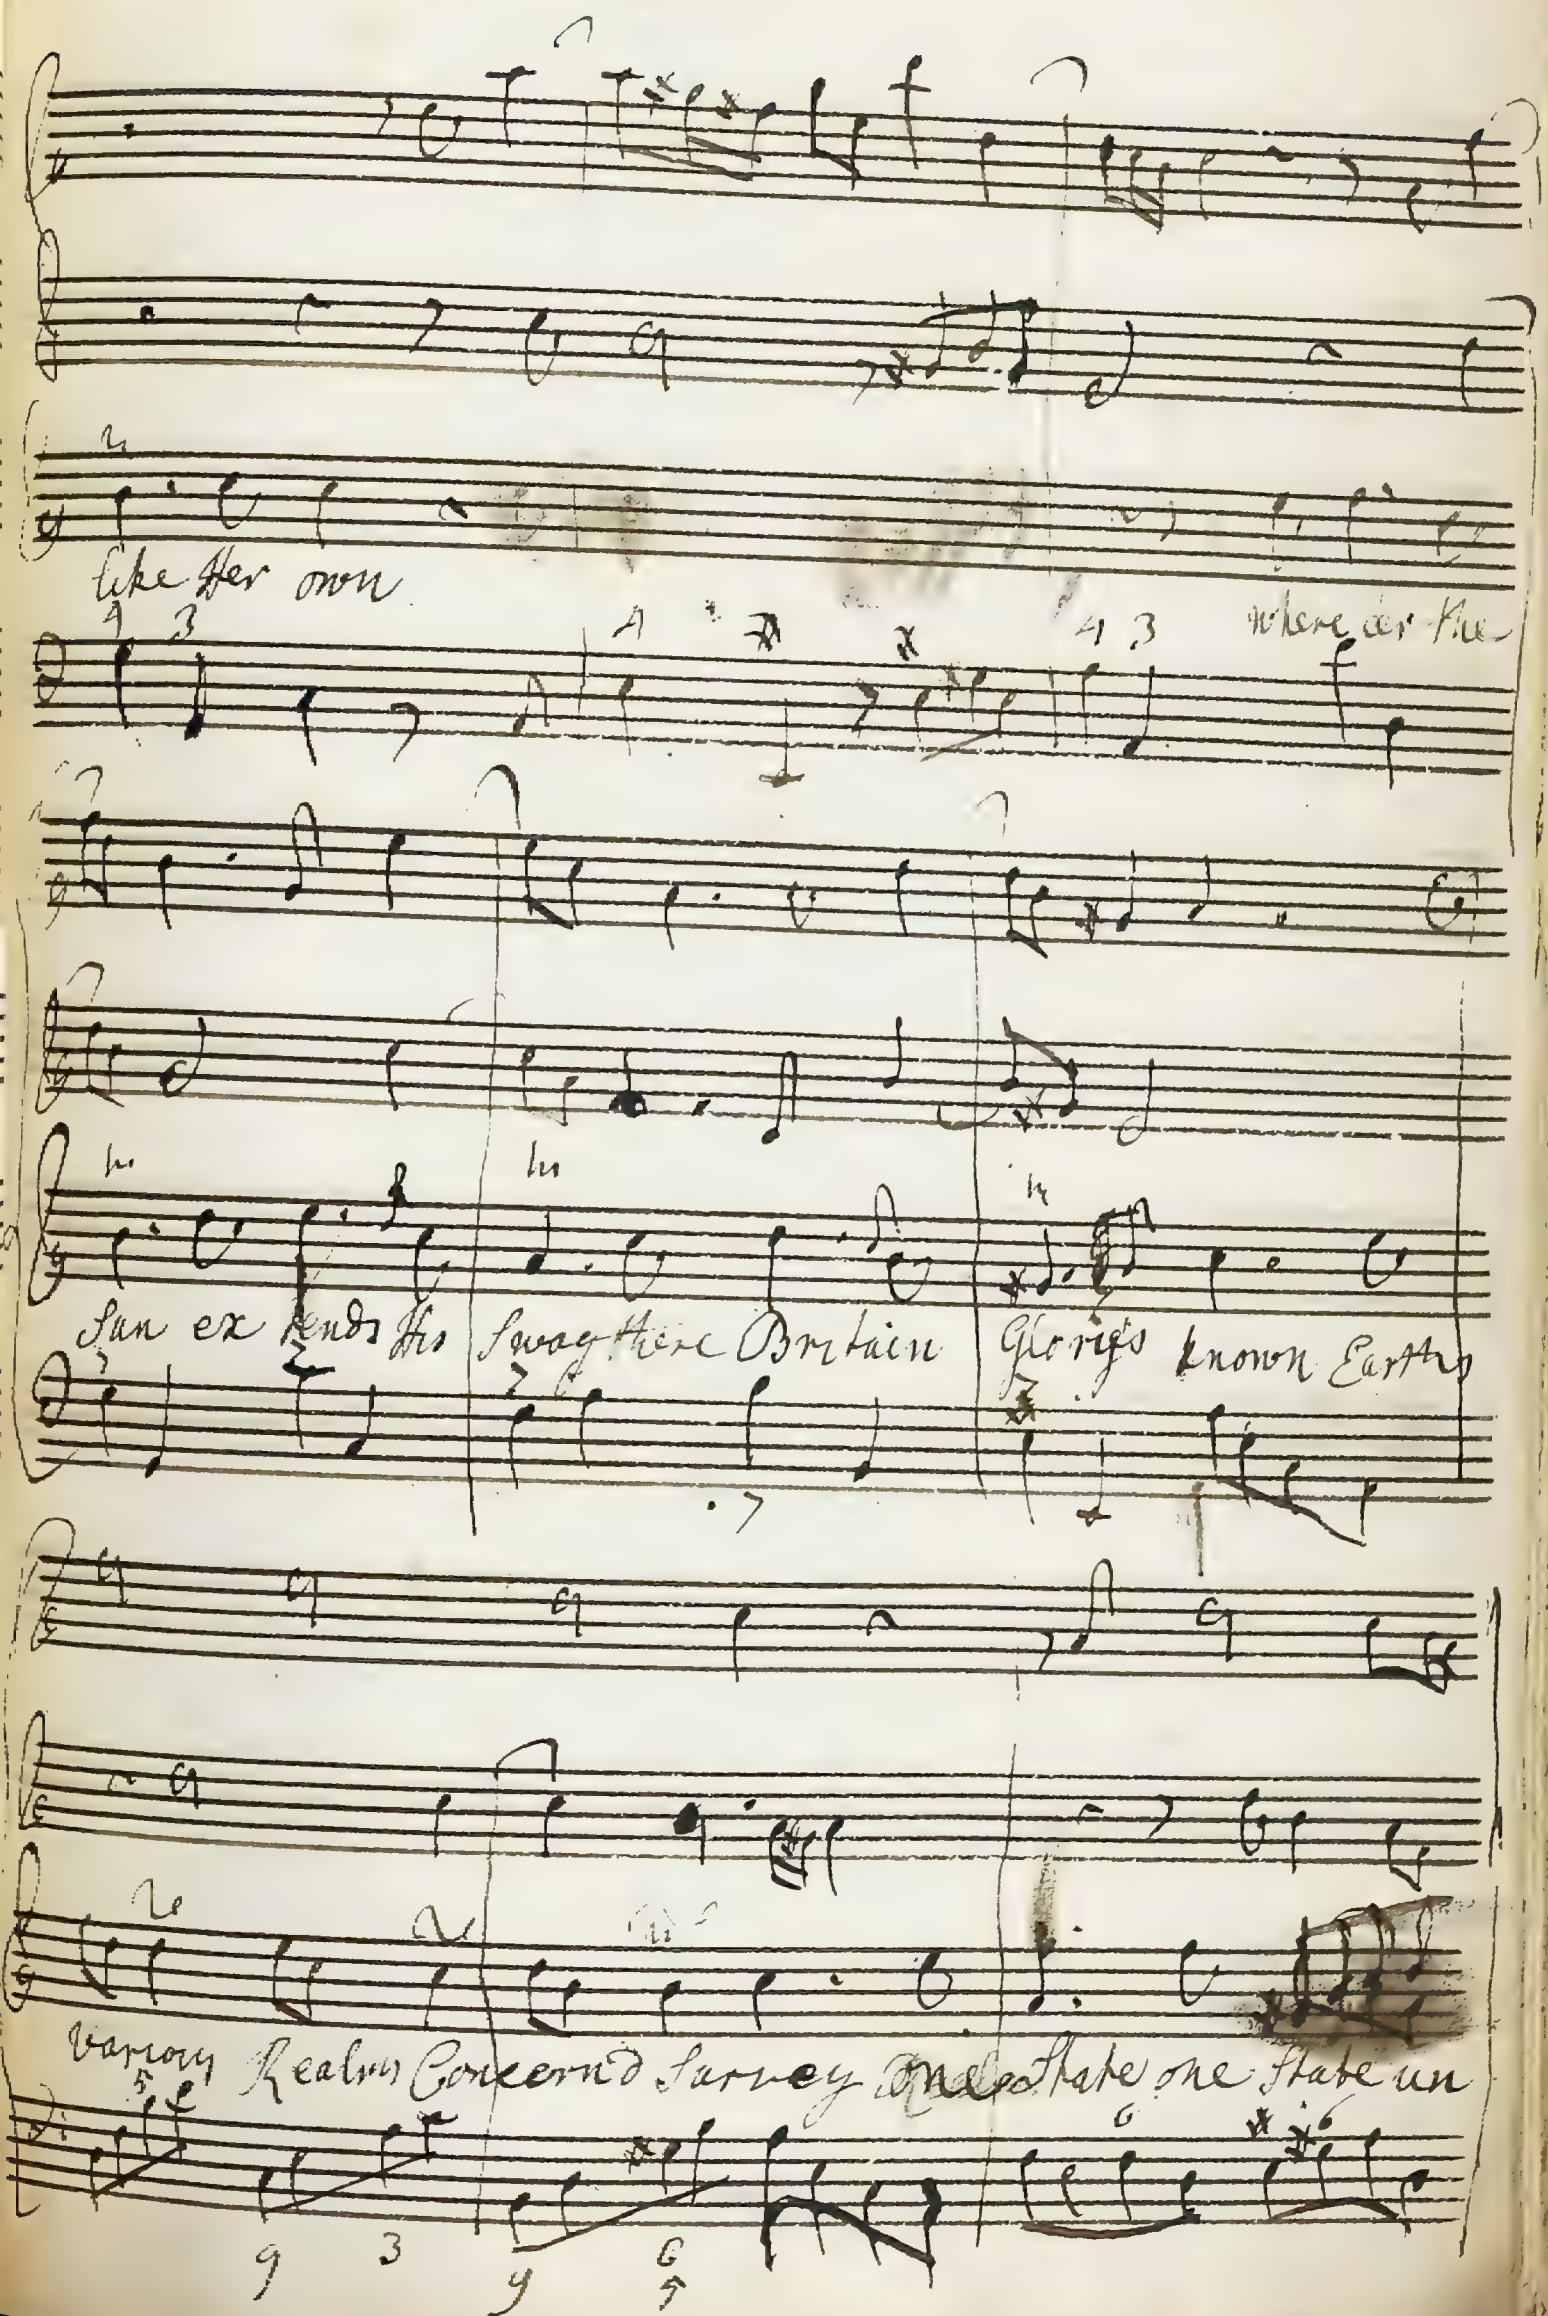 like Her own
4 3 4 4 3 where er the
Sun ex tends His Sway there Britain Glory's known Earths
7 6 7
7
various Realms Concern'd Survey one State one State un
5 6 6
9 3 9 6
5